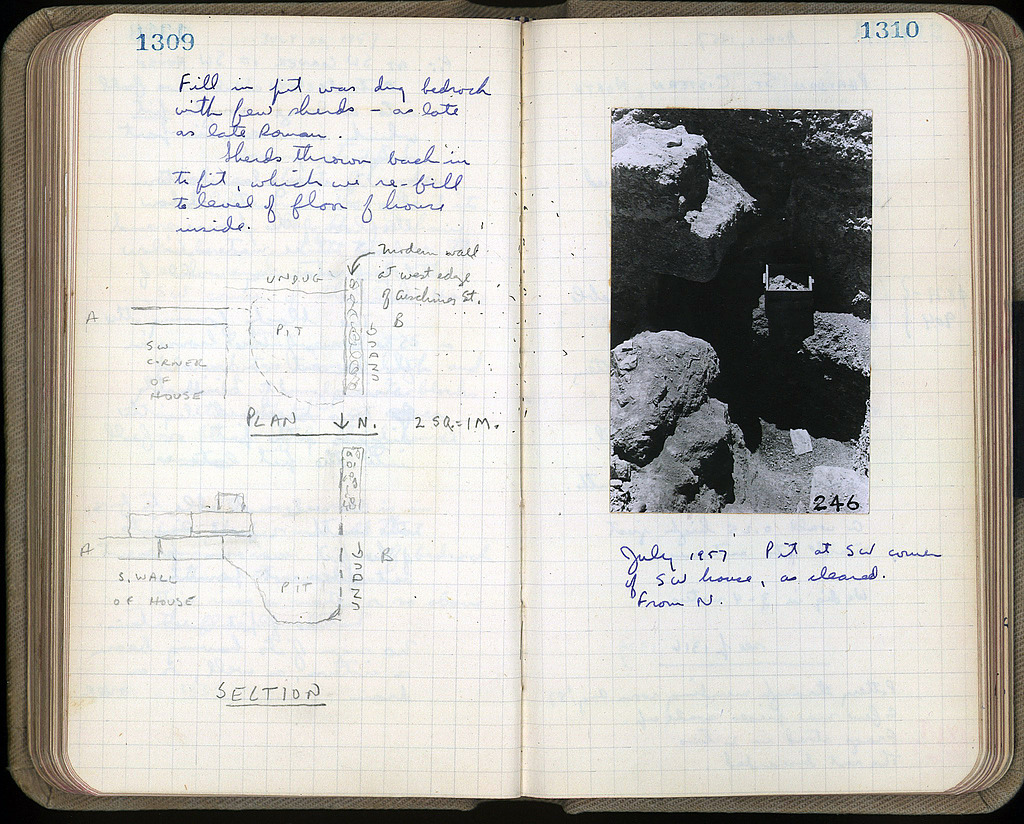 1309
Fill in pit was dug bedrock
with few sherds – as late
as late Roman.
Sherds thrown back in
to pit, which we re-fill
to level of floor of house
inside.
modern wall
at west edge
of Aeschines St.
UNDUG
A
PIT
B
UNDUG
SW
CORNER
OF
HOUSE
PLAN ↓ N. 2 SQ. = 1 M.
A
B
UNDUG
S. WALL
OF HOUSE
PIT
SECTION
1310
246
July 1957 Pit at SW corner
of SW house, as cleared.
From N.